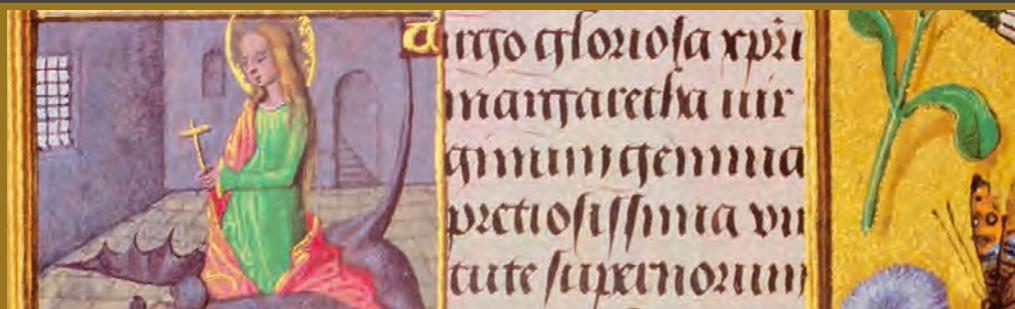 Uirgo gloriosa xpri
margaretha uir
ginum gemma
pretiosissima vir
tute supernorum